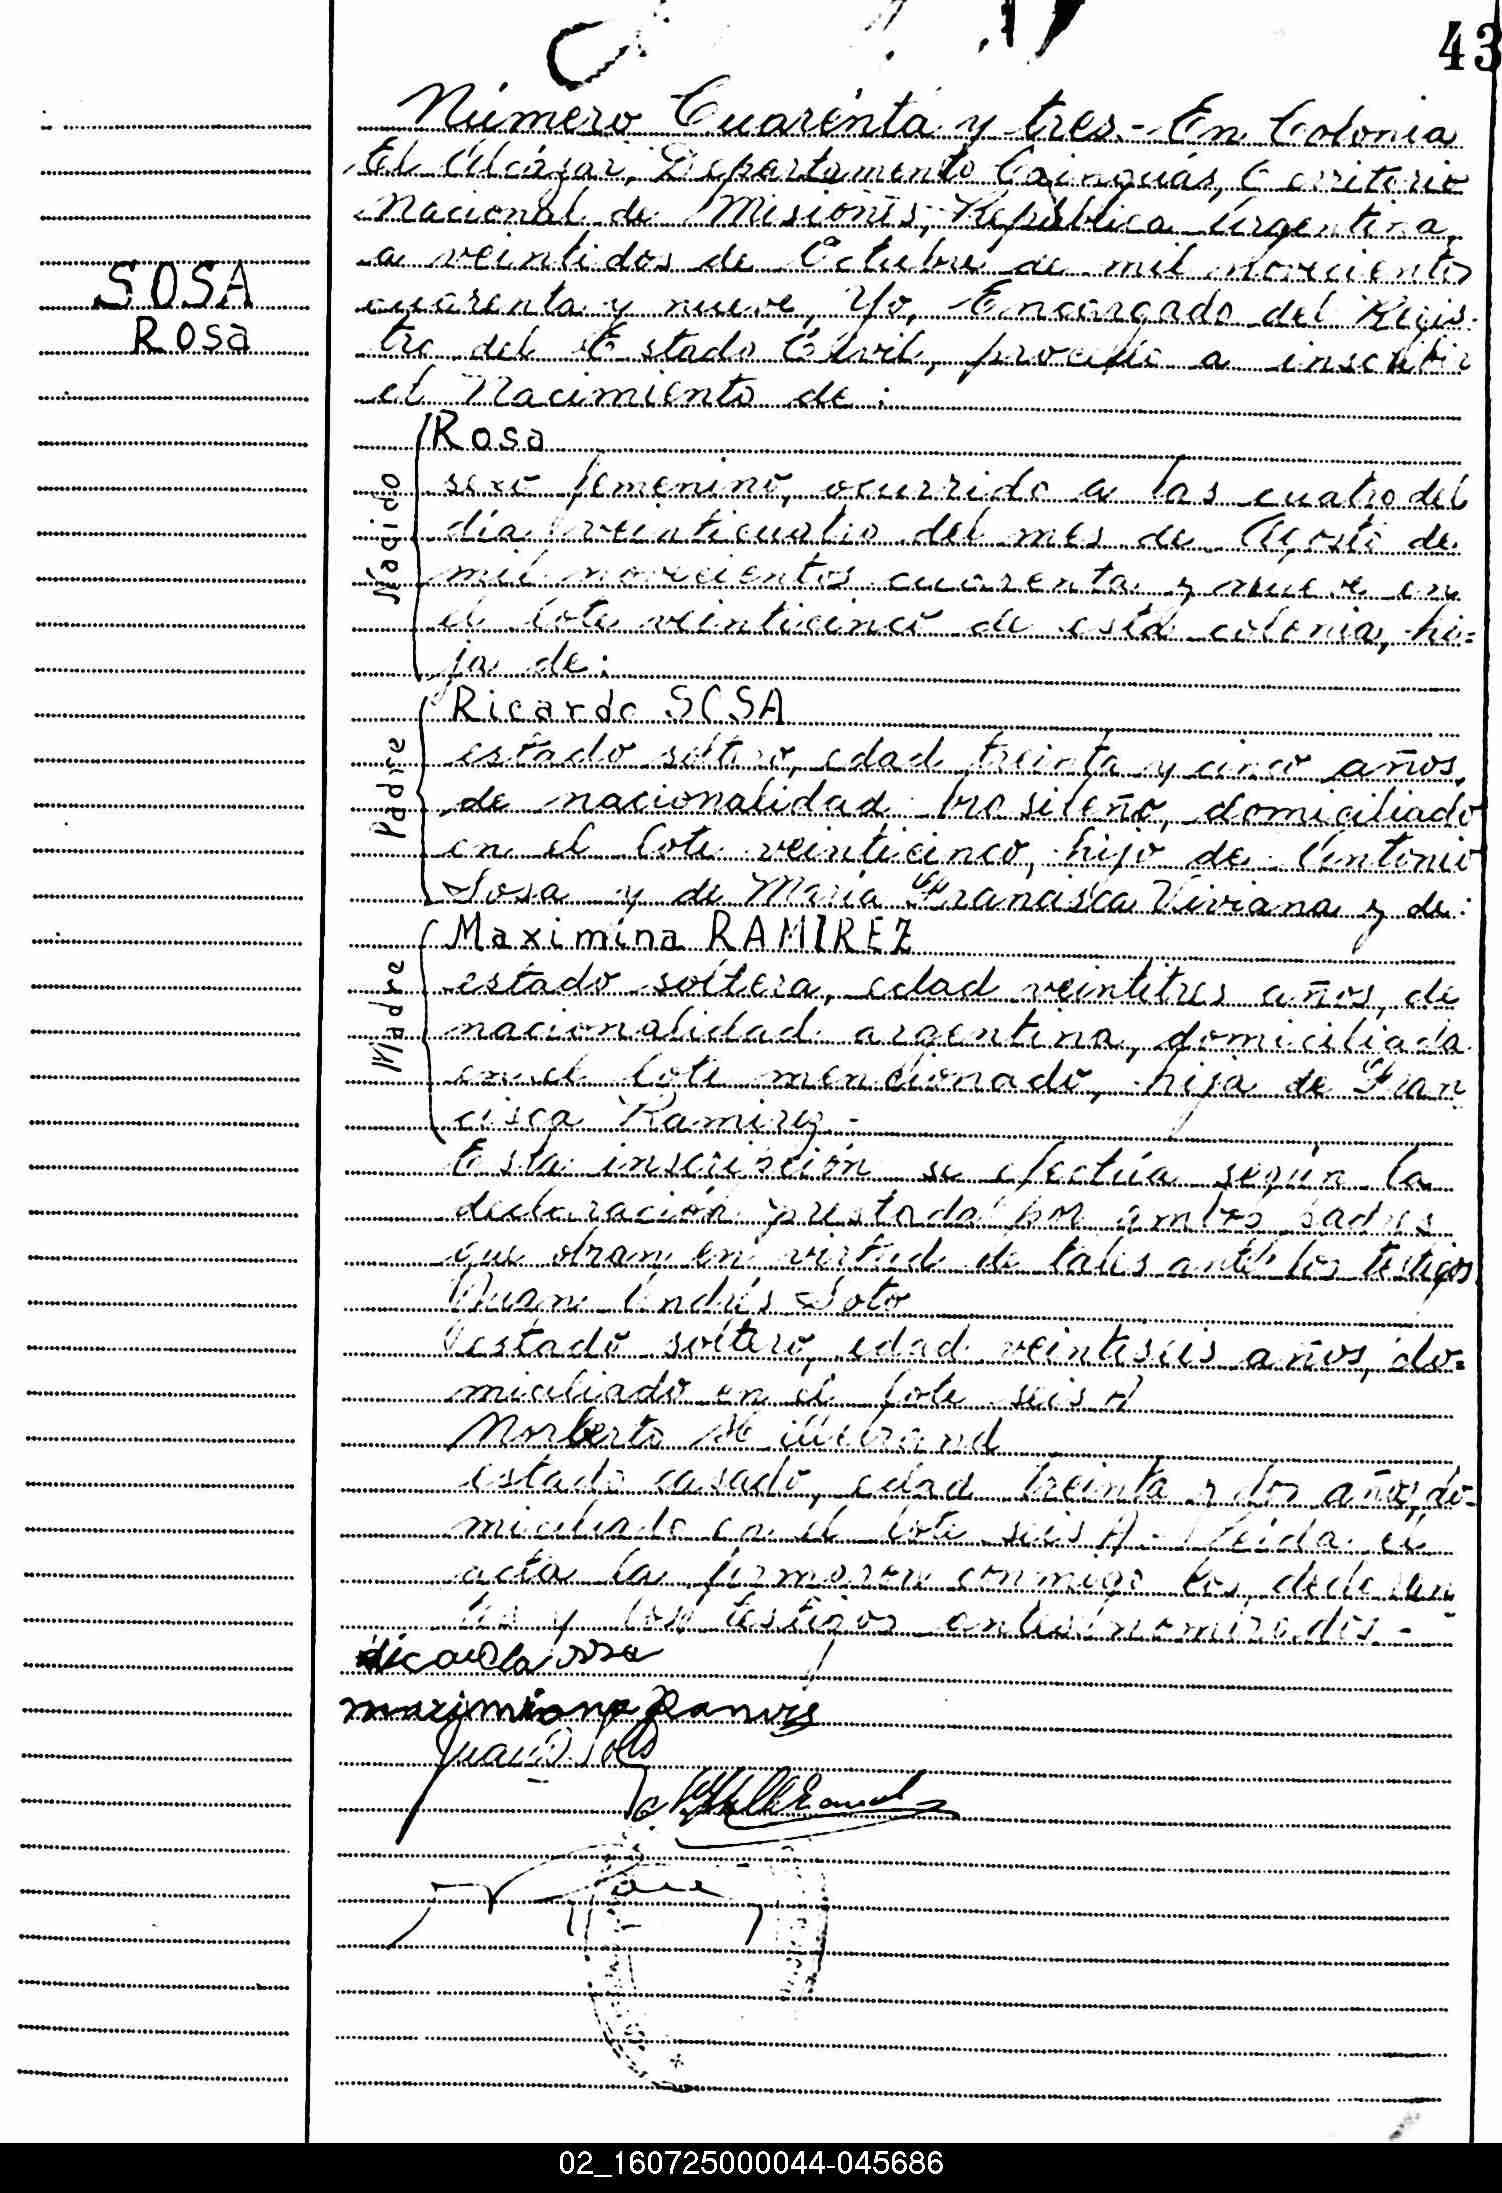 43
Número Cuarenta y tres.- En Colonia
El Alcázar, Departamento Cainguás, Territorio
Nacional de Misiones, República Argentina,
a veintidos de Octubre de mil novecientos
SOSA
cuarenta y nueve, Yo, Encargado del Regis-
Rosa
tro del Estado Civil, procedo a inscribir
el Nacimiento de:
Nacido
Rosa
sexo femenino, ocurrido a las cuatro del
día veinticuatro del mes de Agosto de
mil novecientos cuarenta y nueve en
el lote veinticinco de esta colonia, hi=
ja de:
Padre
Ricardo SOSA
estado soltero, edad treinta y cinco años,
de nacionalidad brasileño, domiciliado
en el lote veinticinco, hijo de Antonio
Sosa y de María Francisca Viviana y de:
Madre
Maximina RAMIREZ
estado soltera, edad veintitres años, de
nacionalidad argentina, domiciliada
en el lote mencionado, hija de Fran
cisca Ramirez.-
Esta inscripción se efectúa según la
declaración prestada por ambos padres
que obran en virtud de tales ante los testigos
Juan Andrés Soto
estado soltero, edad veintiseis años, do=
miciliado en el lote seis A
Norberto Hillebrand
estado casado, edad treinta y dos años, do-
miciliado en el lote seis A.- Leida el
acta la firmaron conmigo los declaran
tes y los testigos antesnombrados.-
Ricardo sosa
Juan A. Soto
02_160725000044-045686